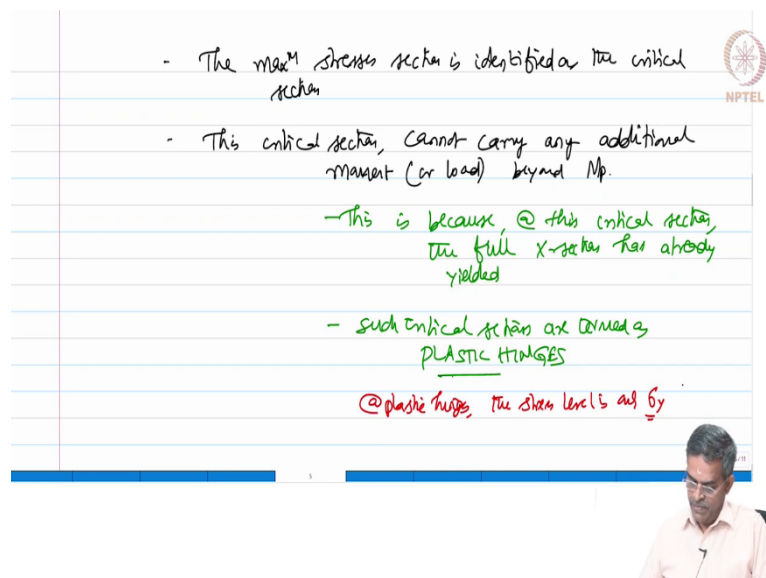 - The max^m stresses section is identified as the critical
section
NPTEL
- This critical section, cannot carry any additional
moment (or load) beyond Mp.
- This is because, @ this critical section,
the full x-section has already
yielded
- such critical sections are termed as
PLASTIC HINGES
@ plastic hinges, the stress level is only σy
5